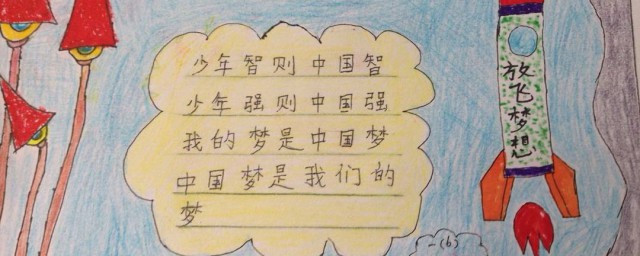 少年智则中国智
少年强则中国强
我的梦是中国梦
中国梦是我们的
梦
放飞梦想
一(6)